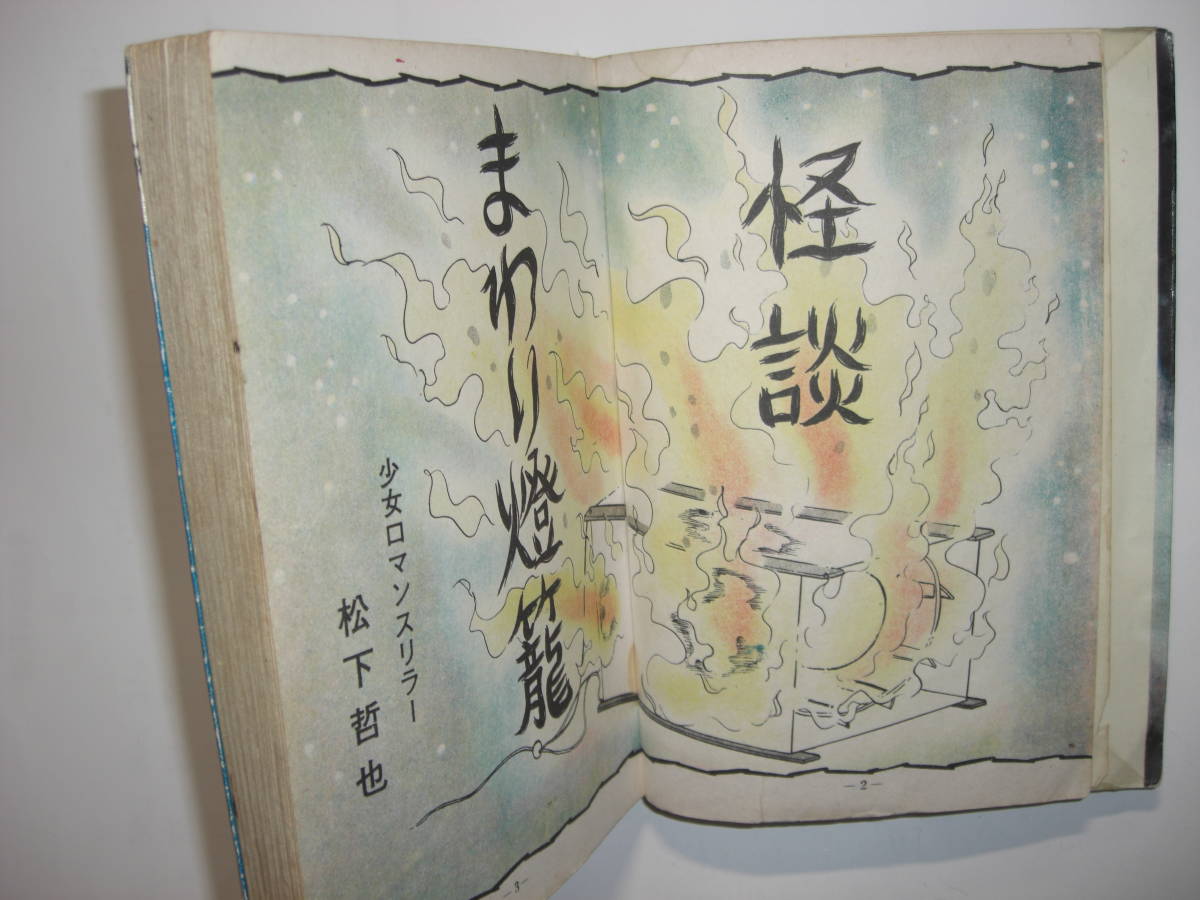 怪談
まわり燈籠
少女ロマンスリラー
松下哲也
—2—
—3—